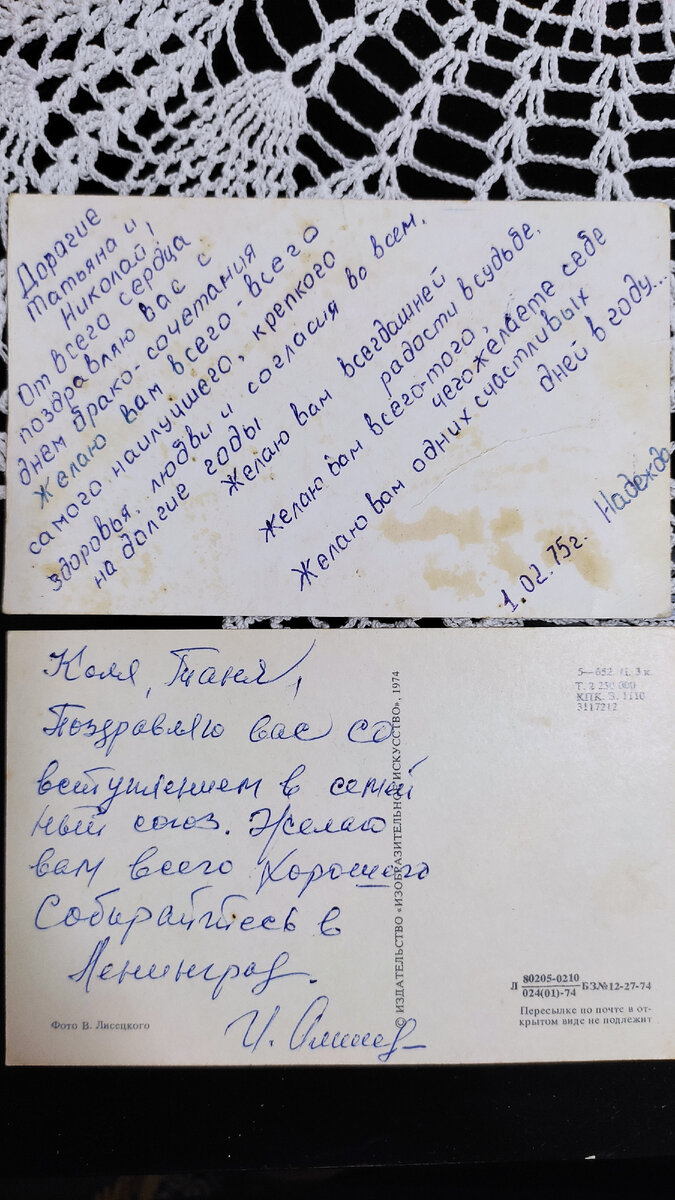 Дорагие
Татьяна и
Николай!
От всего сердца
поздравляю вас с
днем брако-сочетания
Желаю вам всего-всего
самого наилучшего, крепкого
здоровья, любви и согласия во всем.
на долгие годы
Желаю вам всегдашней
радости в судьбе.
Желаю вам всего-того,
чего желаете себе
Желаю вам одних счастливых
дней в году...
1.02.75г. Надежда
Коля, Таня,
Поздравляю вас со
вступлением в семей
ный союз. Желаю
вам всего хорошего
Собирайтесь в
Ленинград.
И.
Фото В. Лисецкого
© ИЗДАТЕЛЬСТВО «ИЗОБРАЗИТЕЛЬНОЕ ИСКУССТВО», 1974
5—652. Ц. 3 к.
Т. 2 250 000
КПК. З. 1110
3117212
Л 80205-0210 БЗ№12-27-74
024(01)-74
Пересылке по почте в от-
крытом виде не подлежит